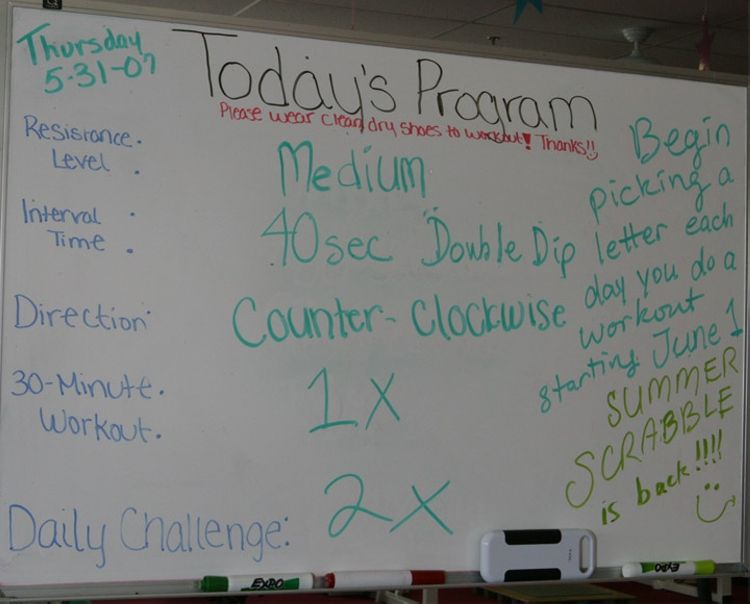 Thursday
5-31-07
Today's Program
Please wear clean, dry shoes to workout! Thanks!!
Resisrance:
Level
Medium
Interval :
Time
40sec "Double Dip
Direction:
Counter-Clockwise
30-Minute:
Workout
1X
Daily Challenge:
2X
Begin
picking a
letter each
day you do a
workout
starting June 1
SUMMER
SCRABBLE
is back!!!!
EXPO
EXPO